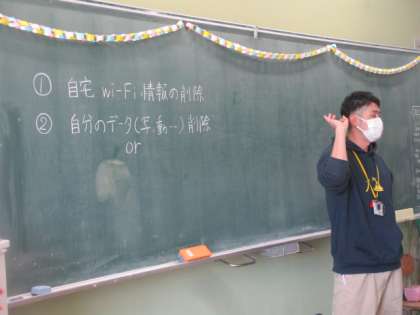 ① 自宅 Wi-Fi 情報の削除
② 自分のデータ(写、動…)削除
or